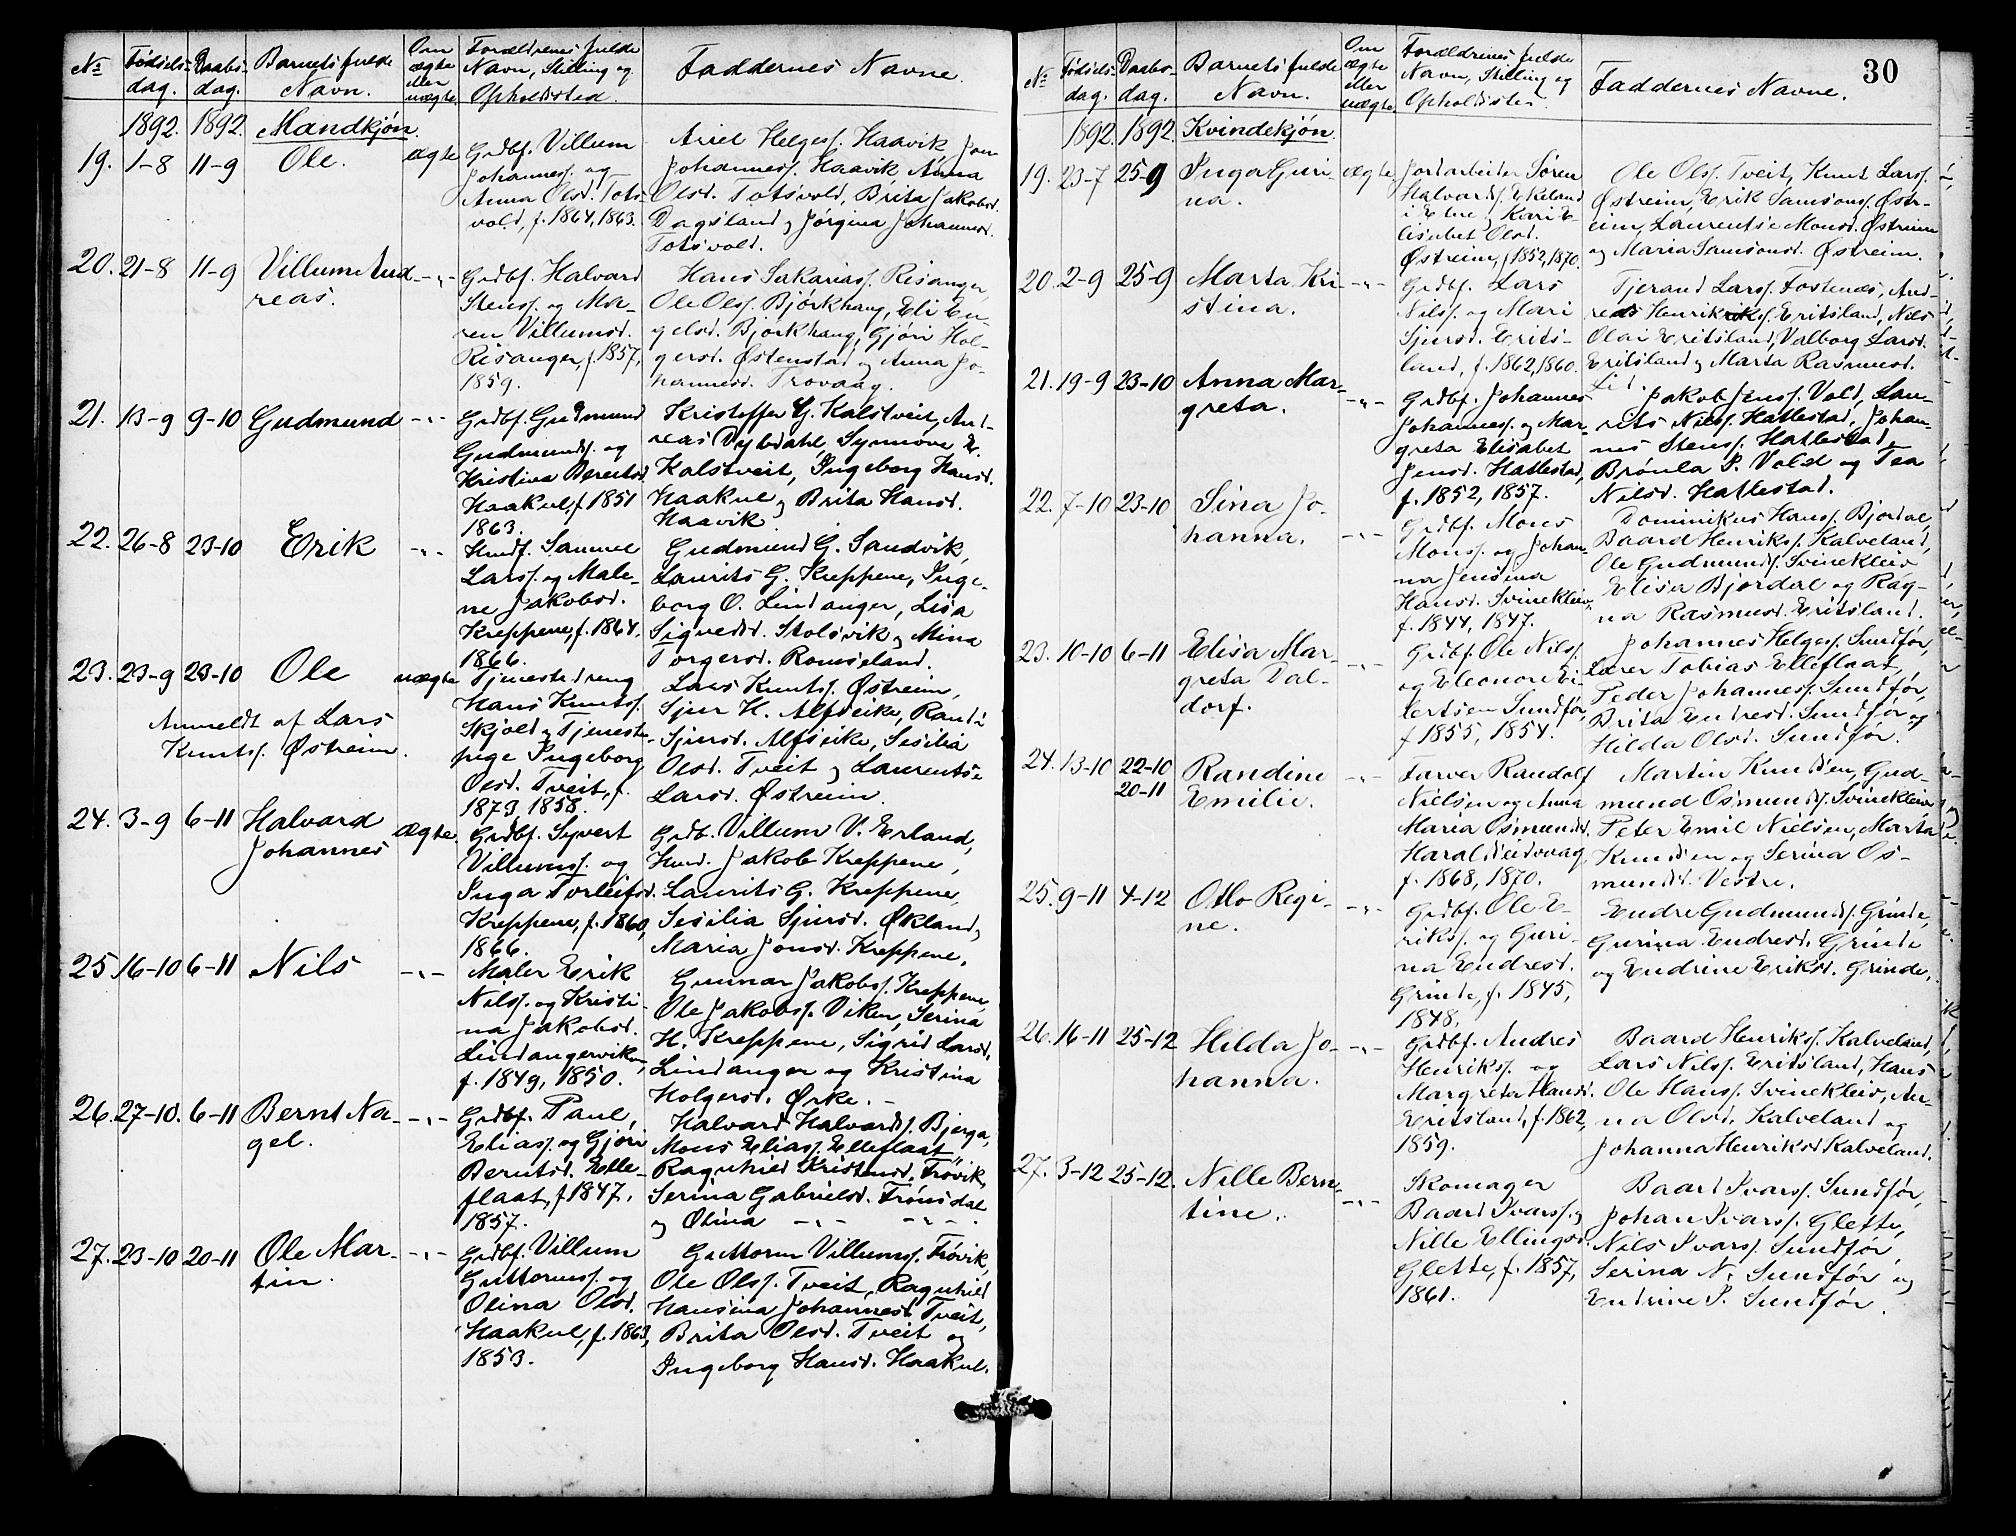 No
Fødsels-
dag.
Daabs-
dag.
Barnets fulde
Navn.
Om
ægte
eller
uægte
Forældrenes fulde
Navn, Stilling og
Opholdssted.
Faddernes Navne.
1892. 1892. Mandkjøn.
19. 1-8 11-9 Ole. ægte
Grdbf. Villum
Johanness. og
Anna Olsd. Tots
vold, f. 1864, 1863.
Helgess. Haavik, Jon
Johanness. Haavik Anna
Olsd. Totsvold, Brita Jakobsd.
Dagsland og Jørgina Johannesd.
Totsvold.
20. 21-8 11-9 Villum And
reas. -"-
Grdbf. Halvard
Stenss. og Ma-
ren Villumsd.
Risanger, f. 1857,
1859.
Hans Sakariass. Risanger,
Ole Olss. Bjørkhaug, Eli En-
gelsd. Bjørkhaug, Gjøri Hol-
gersd. Østenstad og Anna Jo-
hannesd. Trovaag.
21. 13-9 9-10 Gudmund -"-
Grdbf. Gudmund
Gudmunds. og
Kristina Berentsd.
Haakul, f. 1851
1863.
Kristoffer G. Kalstveit, And-
reas Dybdahl, Synnøve E.
Kalstveit, Ingeborg Hansd.
Haakul og Brita Hansd.
Haavik
22. 26-8 23-10 Erik -"-
Husf. Samuel
Larss. og Male-
ne Jakobsd.
Kreppene, f. 1864,
1866.
Gudmund G. Sandvik,
Laurits G. Kreppene, Inge-
borg O. Lindanger, Lisa
Sigvedsd. Stolsvik og Mina
Torgersd. Romseland.
23. 23-9 23-10 Ole uægte
Anmeldt af Lars
Knuts. Østreim.
Tjenestedreng
Hans Knuts.
Skjold og Tjeneste-
pige Ingeborg
Olsd. Tveit, f.
1873, 1858.
Lars Knuts. Østreim,
Sjur H. Alfseike, Randi
Sjursd. Alfseike, Sesilia
Olsd. Tveit og Laurentse
Larsd. Østreim.
24. 3-9 6-11 Halvard
Johannes ægte.
Grdbf. Syvert
Villums. og
Inga Torleifsd.
Kreppene, f. 1860,
1866.
Grdb. Villum V. Erland,
Husm. Jakob Kreppene,
Laurits G. Kreppene,
Sesilia Sjursd. Økland,
Maria Jonsd. Kreppene.
25 16-10 6-11 Nils -"-
Maler Erik
Nilss. og Kristi-
na Jakobsd.
Lindangerviken,
f. 1849, 1850.
Gunnar Jakobss. Kreppene,
Ole Jakobss. Viken, Serina
H. Kreppene, Sigrid Larsd.
Lindanger og Kristina
Holgersd. Ørke. -
26. 27-10. 6-11 Bernt Na-
gel. -"-
Grdbf. Paul,
Eliass. og Gjøri
Berntsd. Elle-
flaat, f. 1847,
1857.
Halvard Halvards. Bjerga,
Mons Eliass. Elleflaat,
Ragnhild Kristensd. Frøvik,
Serina Gabrielsd. Frønsdal
og Olina -"- -"- .
27. 23-10 20-11 Ole Mar-
tin. -"-
Grdbf. Villum
Guttorms. og
Olina Olsd.
Haakul, f. 1863,
1853.
Guttorm Villumss. Frøvik,
Ole Olss. Tveit, Ragnhild
Hansina Johannesd. Tveit,
Brita Olsd. Tveit og
Ingeborg Hansd. Haakul.
30
No
Fødsels-
dag.
Daabs-
dag.
Barnets fulde
Navn.
Om
ægte
eller
uægte
Forældrenes fulde
Navn, Stilling og
Opholdssted.
Faddernes Navne.
1892. 1892. Kvindekjøn.
19. 23-7 25-9 Inga Guri-
na. ægte
Jordarbeider Søren
Halvards. Ekeland
i Elne og Kari E-
lisabet Olsd.
Østreim, f. 1852, 1870.
Ole Olss. Tveit, Knut Larss.
Østreim, Erik Samsons. Østr-
eim, Laurentse Monsd. Østreim
og Maria Samsonsd. Østreim.
20. 2-9 25-9 Marta Kri-
stina. -"-
Grdbf. Lars
Nilss. og Mari
Sjursd. Erits-
land, f. 1862, 1860.
Tjerand Larss. Fostenæs, And-
reas Henriks. Eritsland, Nils
Olai Eritsland, Valborg Larsd.
Eritsland og Marta Rasmusd.
Lid.
21. 19-9 23-10 Anna Mar-
greta. -"-
Grdbf. Johannes
Johanness. og Mar-
greta Elisabet
Jensd. Hattestad,
f. 1852, 1857.
Jakob Jenss. Vold, Lau-
rits Nilss. Hattestad, Johan-
nes Stenss. Hattestad,
Brønla P. Vold og Tea
Nilsd. Hattestad.
22. 7-10 23-10 Sina Jo-
hanna. -"-
Grdbf. Mons
Monss. og Johan-
na Jensina
Hansd. Svinekleiv,
f. 1844, 1847.
Dominikus Hanss. Bjordal,
Baard Henriks. Kalveland,
Ole Gudmunds. Svinekleiv
Elisa Bjordal og Rag-
na Rasmusd. Eritsland.
23. 10-10 6-11 Elisa Mar-
greta Dal-
dorf. -"-
Grdbf. Ole Nilss.
og Eleonore Ei-
lertsen Sundfør,
f. 1855, 1854.
Johannes Helgess. Sundfør,
Lærer Tobias Elleflaat,
Peder Johanness. Sundfør,
Brita Endresd. Sundfør og
Hilda Olsd. Sundfør.
24. 13-10 22-10
20-11 Randine
Emilie. -"-
Farver Randolf
Nielsen og Anna
Maria Osmundsd.
Haraldseidvaag,
f. 1868, 1870.
Martin Knudsen, Gud-
mund Osmunds. Svinekleiv
Peter Emil Nielsen, Marta
Knudsen og Serina Os-
mundsd. Vestre.
25. 9-11 4-12 Otto Regi-
ne. -"-
Grdbf. Ole E-
rikss. og Guri-
na Endresd.
Grinde, f. 1845,
1848.
Endre Gudmunds. Grinde,
Gurina Endresd. Grinde
og Endrine Eriksd. Grinde.
26. 16-11 25-12 Hilda Jo-
hanna. -"-
Grdbf. Andres
Henriks. og
Margreta Hansd.
Eritsland, f. 1862,
1859.
Baard Henriks. Kalveland,
Lars Nilss. Eritsland, Hans
Ole Hanss. Svinekleiv, An-
na Olsd. Kalveland og
Johanna Henriksd Kalveland.
27. 3-12 25-12. Nille Bern-
tine. -"-
Skomager
Baard Ivarss. og
Nille Ellingsd.
Glette, f. 1857,
1861.
Baard Ivarss. Sundfør,
Johan Ivarss. Glette,
Nils Ivarss. Sundfør,
Serina N. Sundfør og
Endrine P. Sundfør.